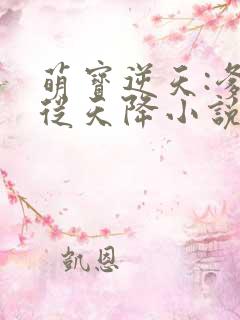 萌寶逆天:
從天降小說
凱恩